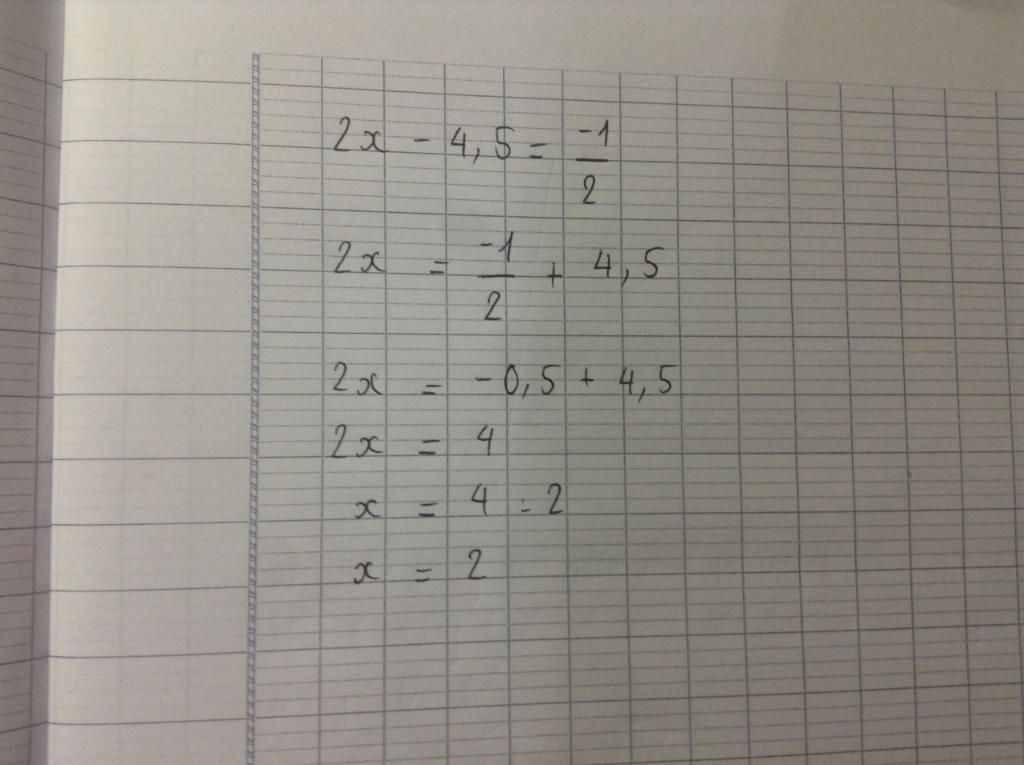 2x - 4,5 = -1/2
2x = -1/2 + 4,5
2x = -0,5 + 4,5
2x = 4
x = 4 : 2
x = 2